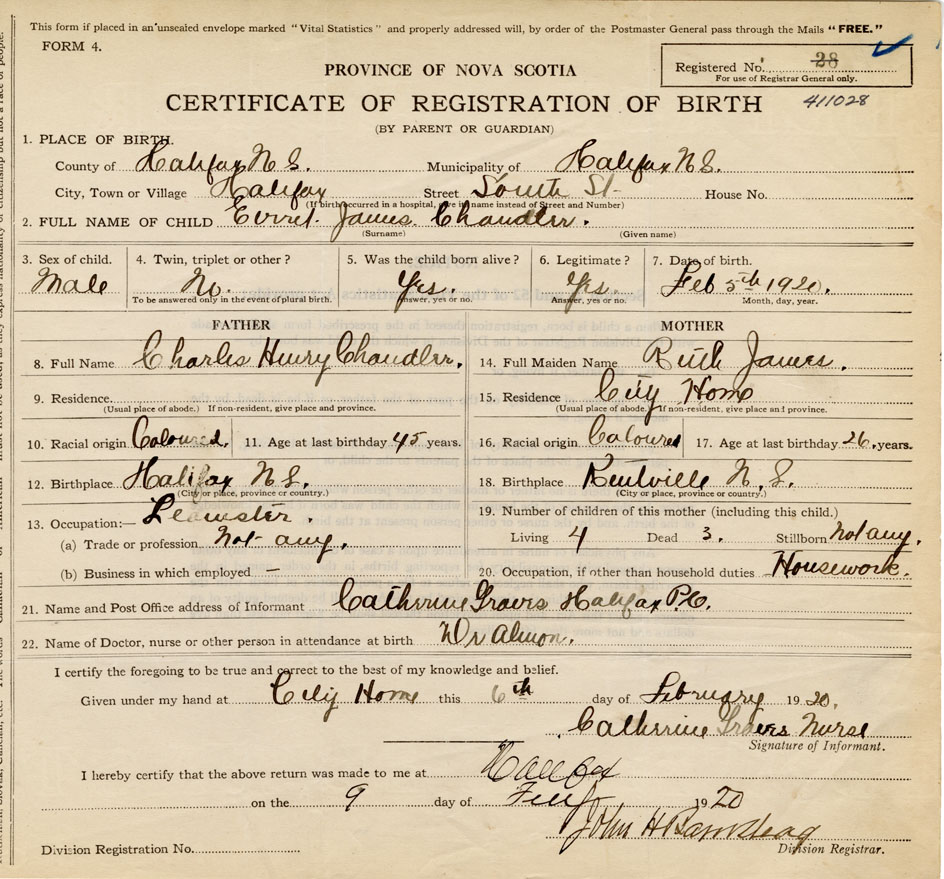 This form if placed in an unsealed envelope marked "Vital Statistics" and properly addressed will, by order of the Postmaster General pass through the Mails "FREE."
FORM 4.
Registered No. 28
For use of Registrar General only.
PROVINCE OF NOVA SCOTIA
CERTIFICATE OF REGISTRATION OF BIRTH 411028
(BY PARENT OR GUARDIAN)
1. PLACE OF BIRTH.
County of Halifax N S. Municipality of Halifax N S.
City, Town or Village Halifax Street South St. House No.
(If birth occurred in a hospital, give its name instead of Street and Number)
2. FULL NAME OF CHILD Evret James Chandler.
(Surname) (Given name)
3. Sex of child. 4. Twin, triplet or other? 5. Was the child born alive? 6. Legitimate? 7. Date of birth.
Male No. Yes. Yes. Feb 5th 1920.
To be answered only in the event of plural birth. Answer, yes or no. Answer, yes or no. Month, day, year.
FATHER MOTHER
8. Full Name Charles Henry Chandler. 14. Full Maiden Name Ruth James.
9. Residence. 15. Residence City Home
(Usual place of abode.) If non-resident, give place and province. (Usual place of abode.) If non-resident, give place and province.
10. Racial origin Coloured. 11. Age at last birthday 45 years. 16. Racial origin Coloured 17. Age at last birthday 26, years.
12. Birthplace Halifax N S. 18. Birthplace Kentville N. S.
(City or place, province or country.) (City or place, province or country.)
13. Occupation:— Teamster. 19. Number of children of this mother (including this child.)
(a) Trade or profession not any. Living 4 Dead 3. Stillborn not any.
(b) Business in which employed — 20. Occupation, if other than household duties Housework.
21. Name and Post Office address of Informant Catherine Graves Halifax P.O.
22. Name of Doctor, nurse or other person in attendance at birth Dr Almon.
I certify the foregoing to be true and correct to the best of my knowledge and belief.
Given under my hand at City Home this 6th day of February 1920.
Catherine Graves Nurse
Signature of Informant.
I hereby certify that the above return was made to me at Halifax
on the 9 day of Feby 1920
John H
Division Registration No. Division Registrar.